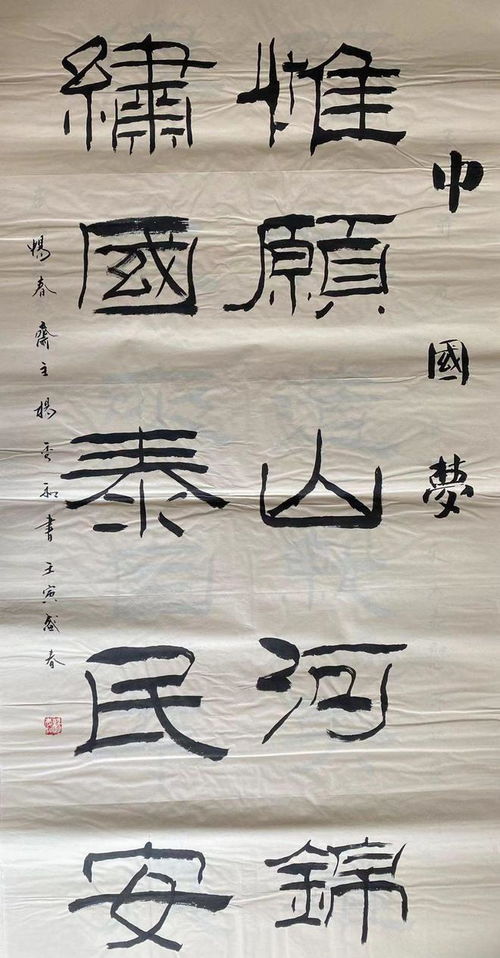 中國夢
惟願山河錦
繡國泰民安
春齋主楊和書壬寅盛春